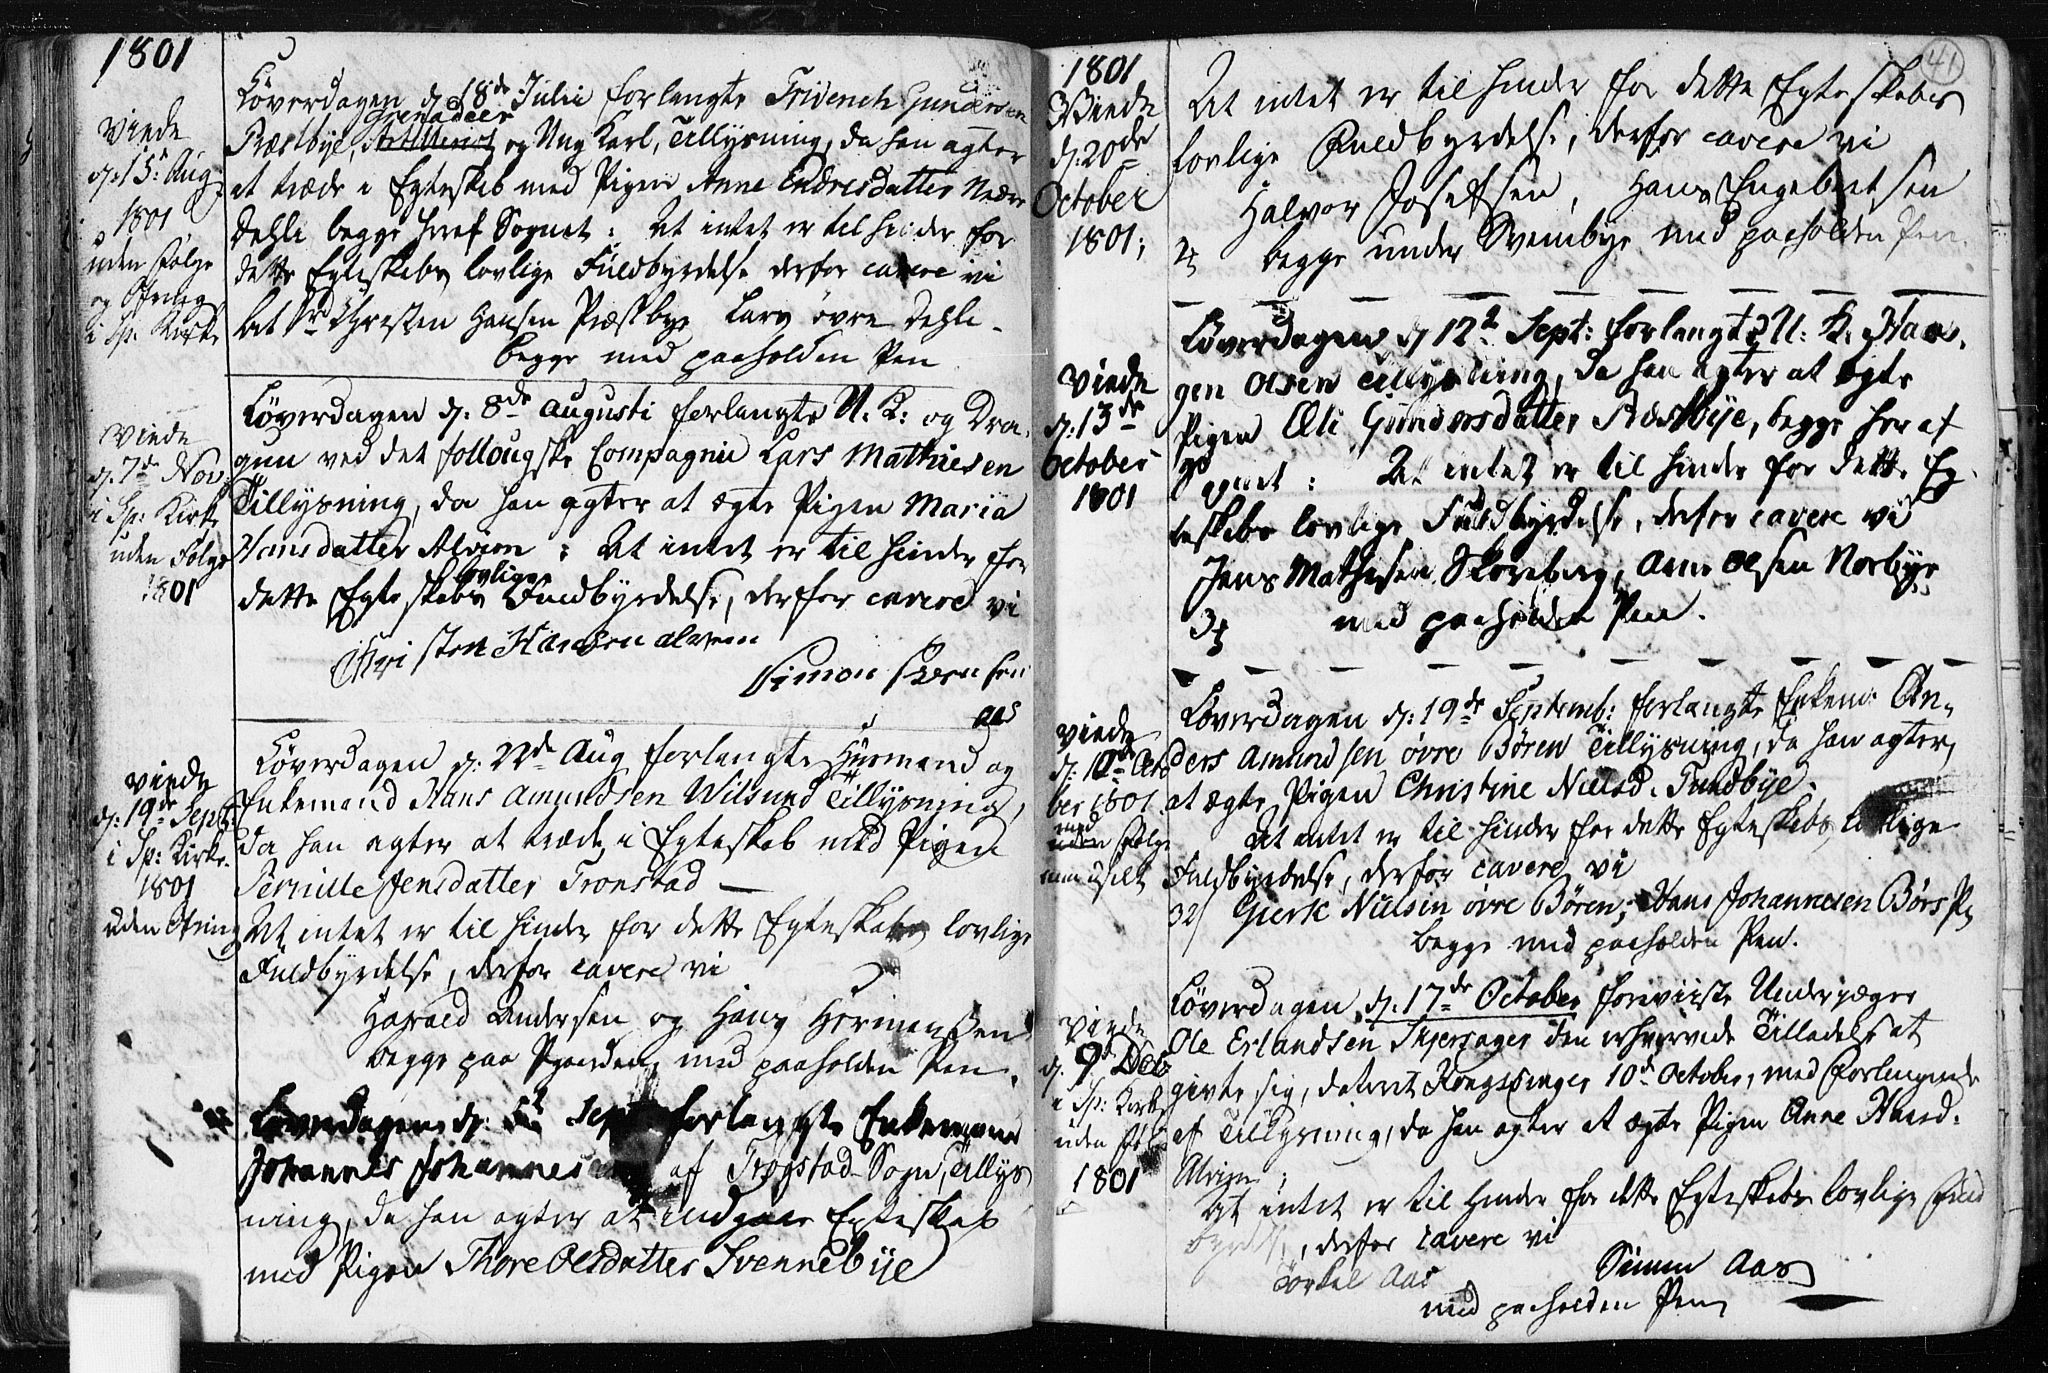 1801
Viede
d: 15: Aug:
1801
uden Følge
og Ofring
i Sp: Kirke
Løverdagen d 18de Julii forlangte Friderich Gundersen
Grenadeer
Præstbye, og Ung Karl, Tillysning, da han agter
at træde i Egteskab med Pigen Anne Endresdatter Nedre
Dehli begge her af Sognet: At intet er til hinder for
dette Egteskabs lovlige Fuldbyrdelse derfor cavere vi
Christen Hansen Præstbye Lars øvre Dehli
begge med paaholden Pen
Viede
d: 7de Nov:
i Sp: Kirke
uden Følge
1801
Løverdagen d: 8de Augusti forlangte U. K: og Dra-
gun ved det follougske Compagnie Lars Mathiesen
Tillysning, da han agter at ægte Pigen Maria
Hansdatter Alvim: At intet er til hinder for
lovlige
dette Egteskabs Fuldbyrdelse, derfor cavere vi
Christen Hansen alvim
Simon
aas
Viede
d: 19de Sept:
i Sp: Kirke.
1801
uden Ofring
Løverdagen d: 22de Aug forlangte Huusmand og
Enkemand Hans Amundsen Wilsund Tillysning,
da han agter at træde i Egteskab med Pigen
Pernille Jensdatter Tronstad
At intet er til hinder for dette Egteskabs lovlige
Fuldbyrdelse, derfor cavere vi
Harald Andersen og Hans Hermansen
begge paa med paaholden Pen.
Løverdagen d: Sept forlangte Enkemand
Johannes Johannes af Trøgstad Sogn, Tillys
ning, da han agter at indgaae Egteskab
med Pigen Thore Olsdatter Svennebye
41
1801
Viede
d: 20de
October
1801;
At intet er til hinder for dette Egteskabs
lovlige Fuldbyrdelse, derfor cavere vi
Halvor Josefsen, Hans Engebretsen
begge under Svenbye med paaholden Pen.
Viede
d: 13de
October
1801
Løverdagen d 12te Sept: forlangte U: K. Haa-
gen Olsen Tillysning, da han agter at ægte
Pigen Eli Gundersdatter Præstbye, begge her af
Sognet: At intet er til hinder for dette Eg-
teskabs lovlige Fuldbyrdelse, derfor cavere vi
Jens Mathesen Skoreberg, Arne Olsen Norbye
med paaholden Pen.
Viede
d: 10de Octo
ber 1801
med
uden Følge
Løverdagen d: 19de Septemb: forlangte Enkem: An-
ders Amundsen øvre Børen Tillysning, da han agter
at ægte Pigen Christine Nielsd. Tundbye:
At intet er til hinder for dette Egteskabs lovlige
Fuldbyrdelse, derfor cavere vi
32/ Gierk Nielsen øvre Børen, Hans Johannesen Børs
begge med paaholden Pen.
Viede
d. 9d Dec
i Sp: Kirke
uden Følge
1801
Løverdagen d: 17de October foreviiste Underjæger
Ole Erlandsen Skjersager den erhvervede Tilladelse at
givte sig, dateret Kongsvinger 10d October, med Forlangende
af Tillysning, da han agter at ægte Pigen Anne Haard.
Alvim:
At intet er til Hinder for dette Egteskabs lovlige Fuld
byrdelse, derfor cavere vi
Simen Aas
Torkel Aas
med paaholden Pen